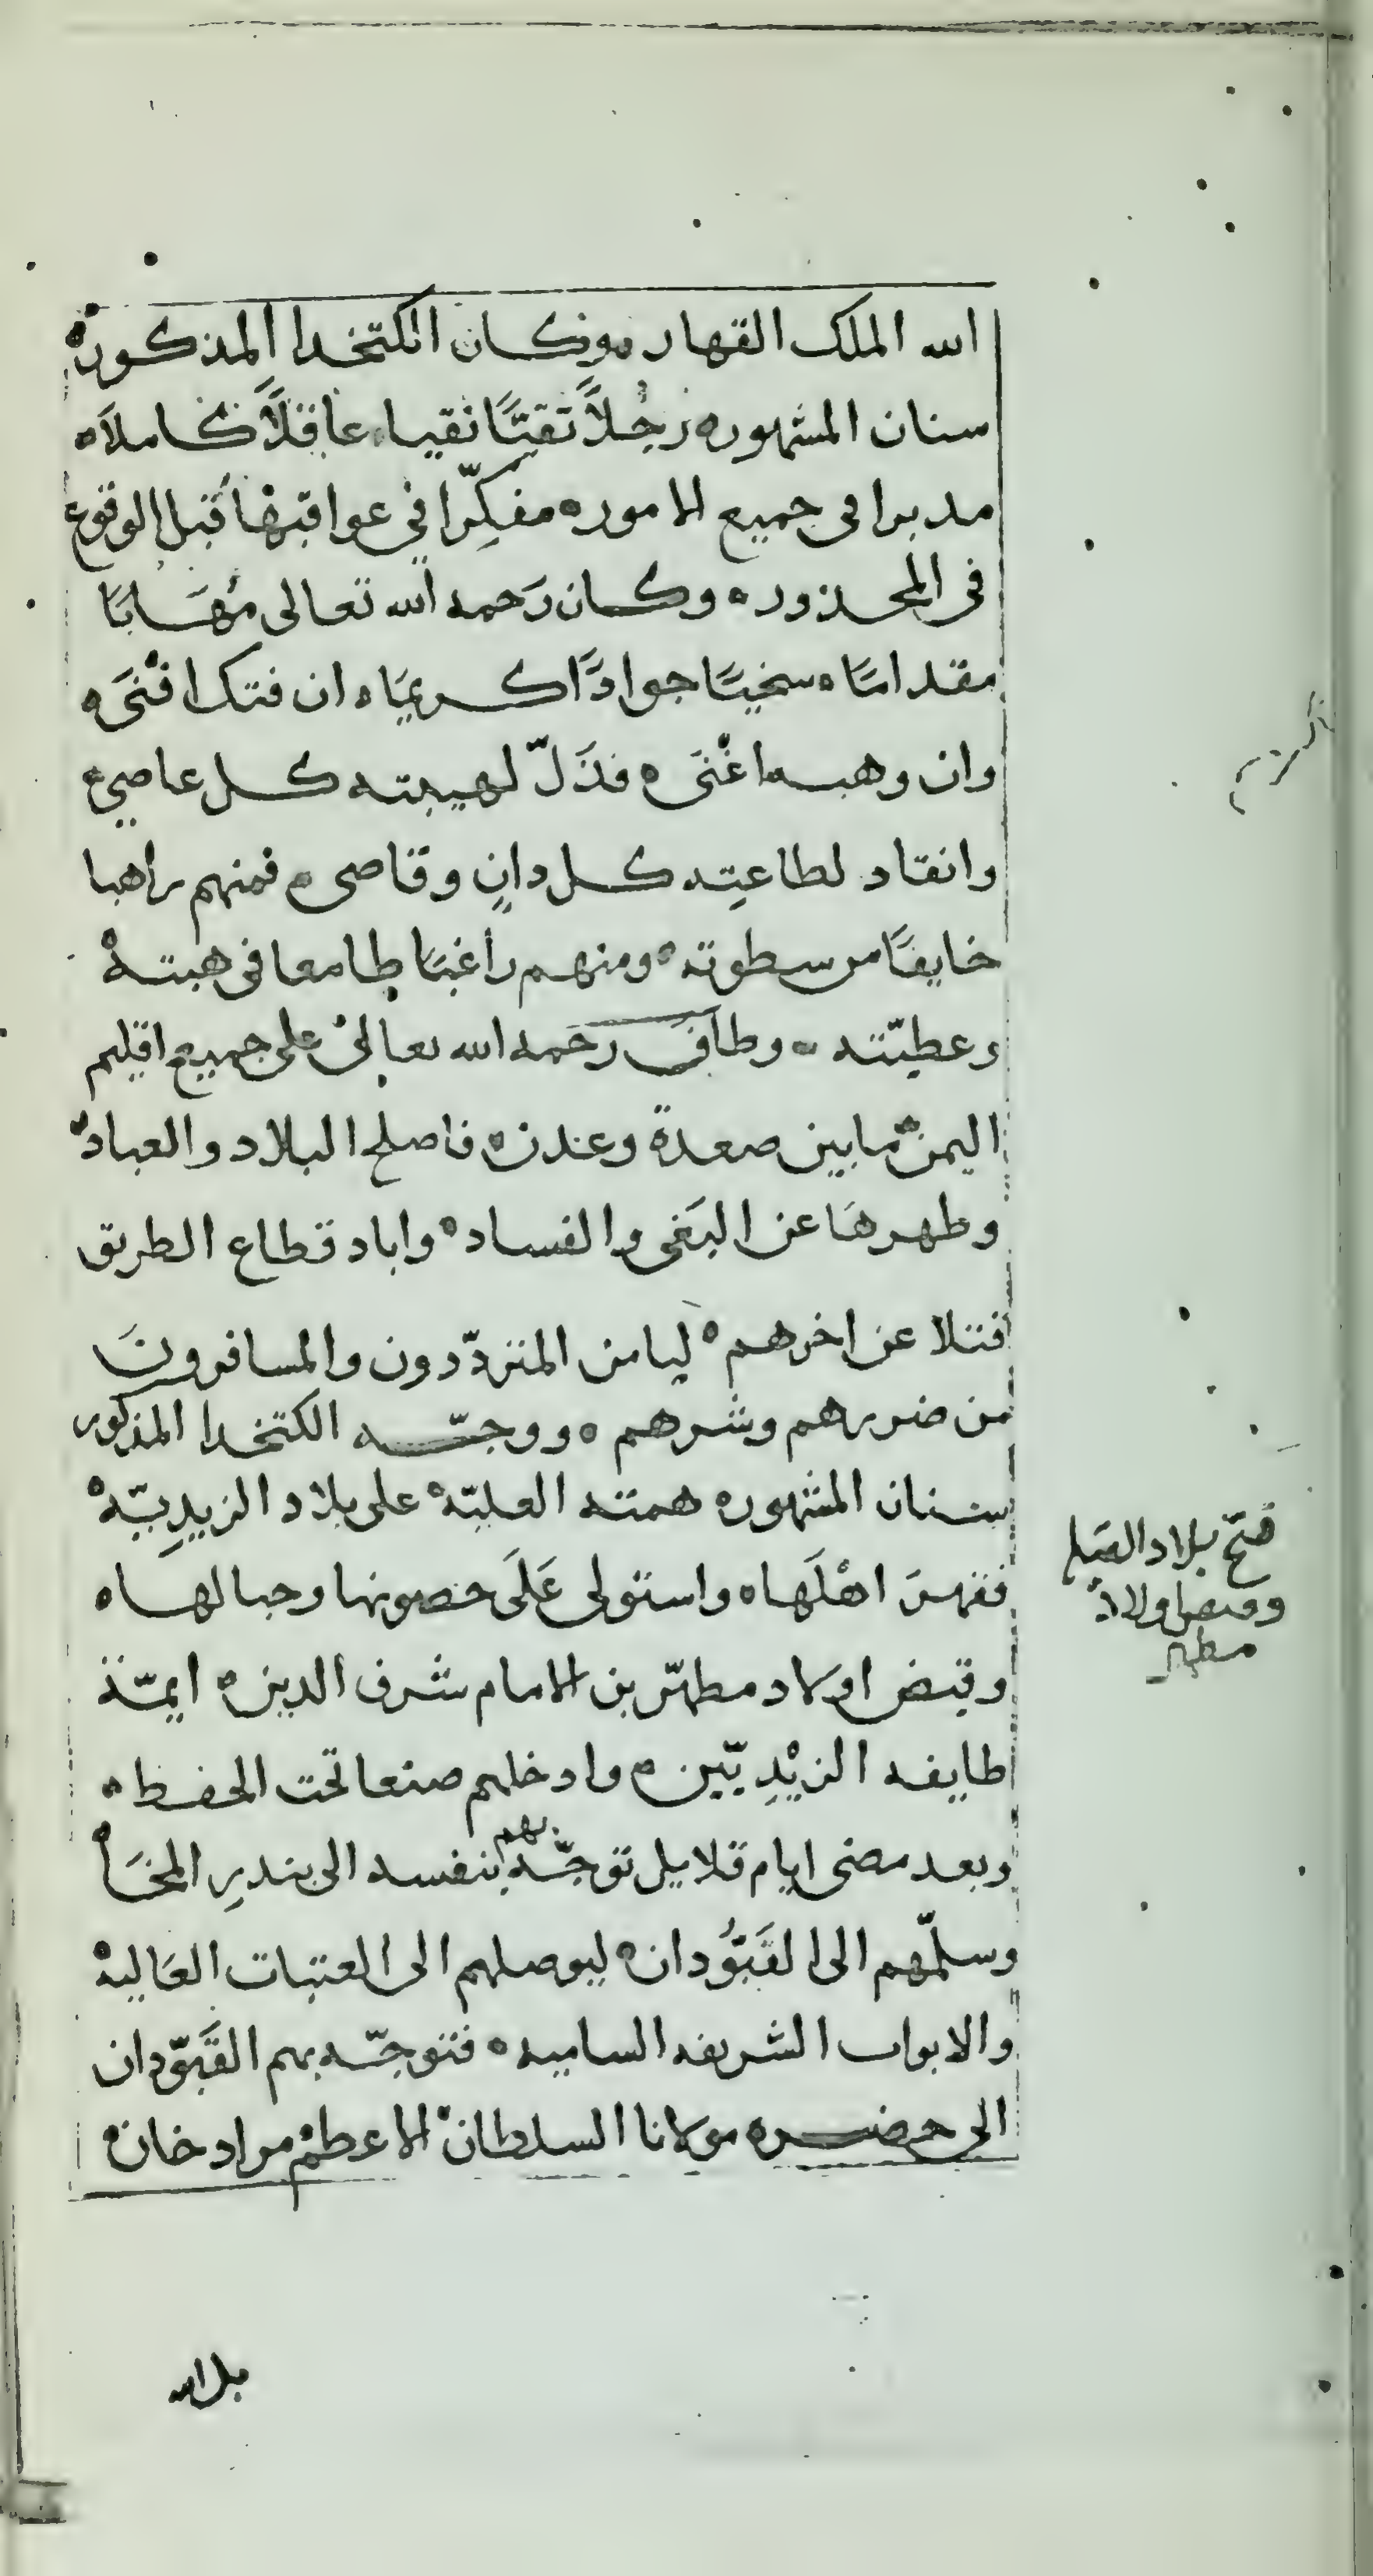 الله الملك القهار ه وكان الكتخدا المذكور ه
سنان المشهور ه رجُلاً تقيًّا نقيا ه عاقلاً كاملاً ه
مدبرا فى جميع الامور ه مفكِّرا في عواقبها قبل الوقوع
فى المحذور ه وكان رَحمه الله تعالى مُهَابًا
مقدامًا ه سخيًا جوادًا كريمًا ه ان فتك افنَى ه
وان وهب اغْنَى ه فذَلّ لهيبته كل عاصي ه
وانقاد لطاعتِه كل دانٍ وقاصى ه فمنهم راهبا
خايفًا من سطوته ه ومنهم راغبًا طامعا فى هبته
وعطيّته ه وطاف رَحمه الله تعالى على جميع اقليم
اليمن ه مابين صعدة وعدن ه فاصلح البلاد والعباد ه
وطهرهَا عن البَغى والفساد ه واباد قطاع الطريق
قتلا عن اخرهم ه ليامن المتردّدون والمسافرونَ
من ضررهم وشرهم ه ووجّه الكتخدا المذكور
سنان المشهور ه همته العليّة ه على بلاد الزيدِيّة ه
فقهرَ اهْلَها ه واستولى عَلَى حصونها وجبالها ه
وقبض اولاد مطهّر بن الامام شرف الدين ه ايمّة
طايفه الزيْدِيّين ه وادخلهم صنعا تحت الحفظ ه
وبعد مضى ايام قلايل توجّه بهم بنفسه الى بندرِ المخَا ه
وسلّمهم الى القَبَوُدان ه ليوصلهم الى العتبات العَالية ه
والابواب الشريفه الساميه ه فتوجّه بهم القَبَوّدان
الى حضره مولانا السلطان ه الاعظم مراد خان ه
فتح بلاد
وقبض اولاد
مطهر